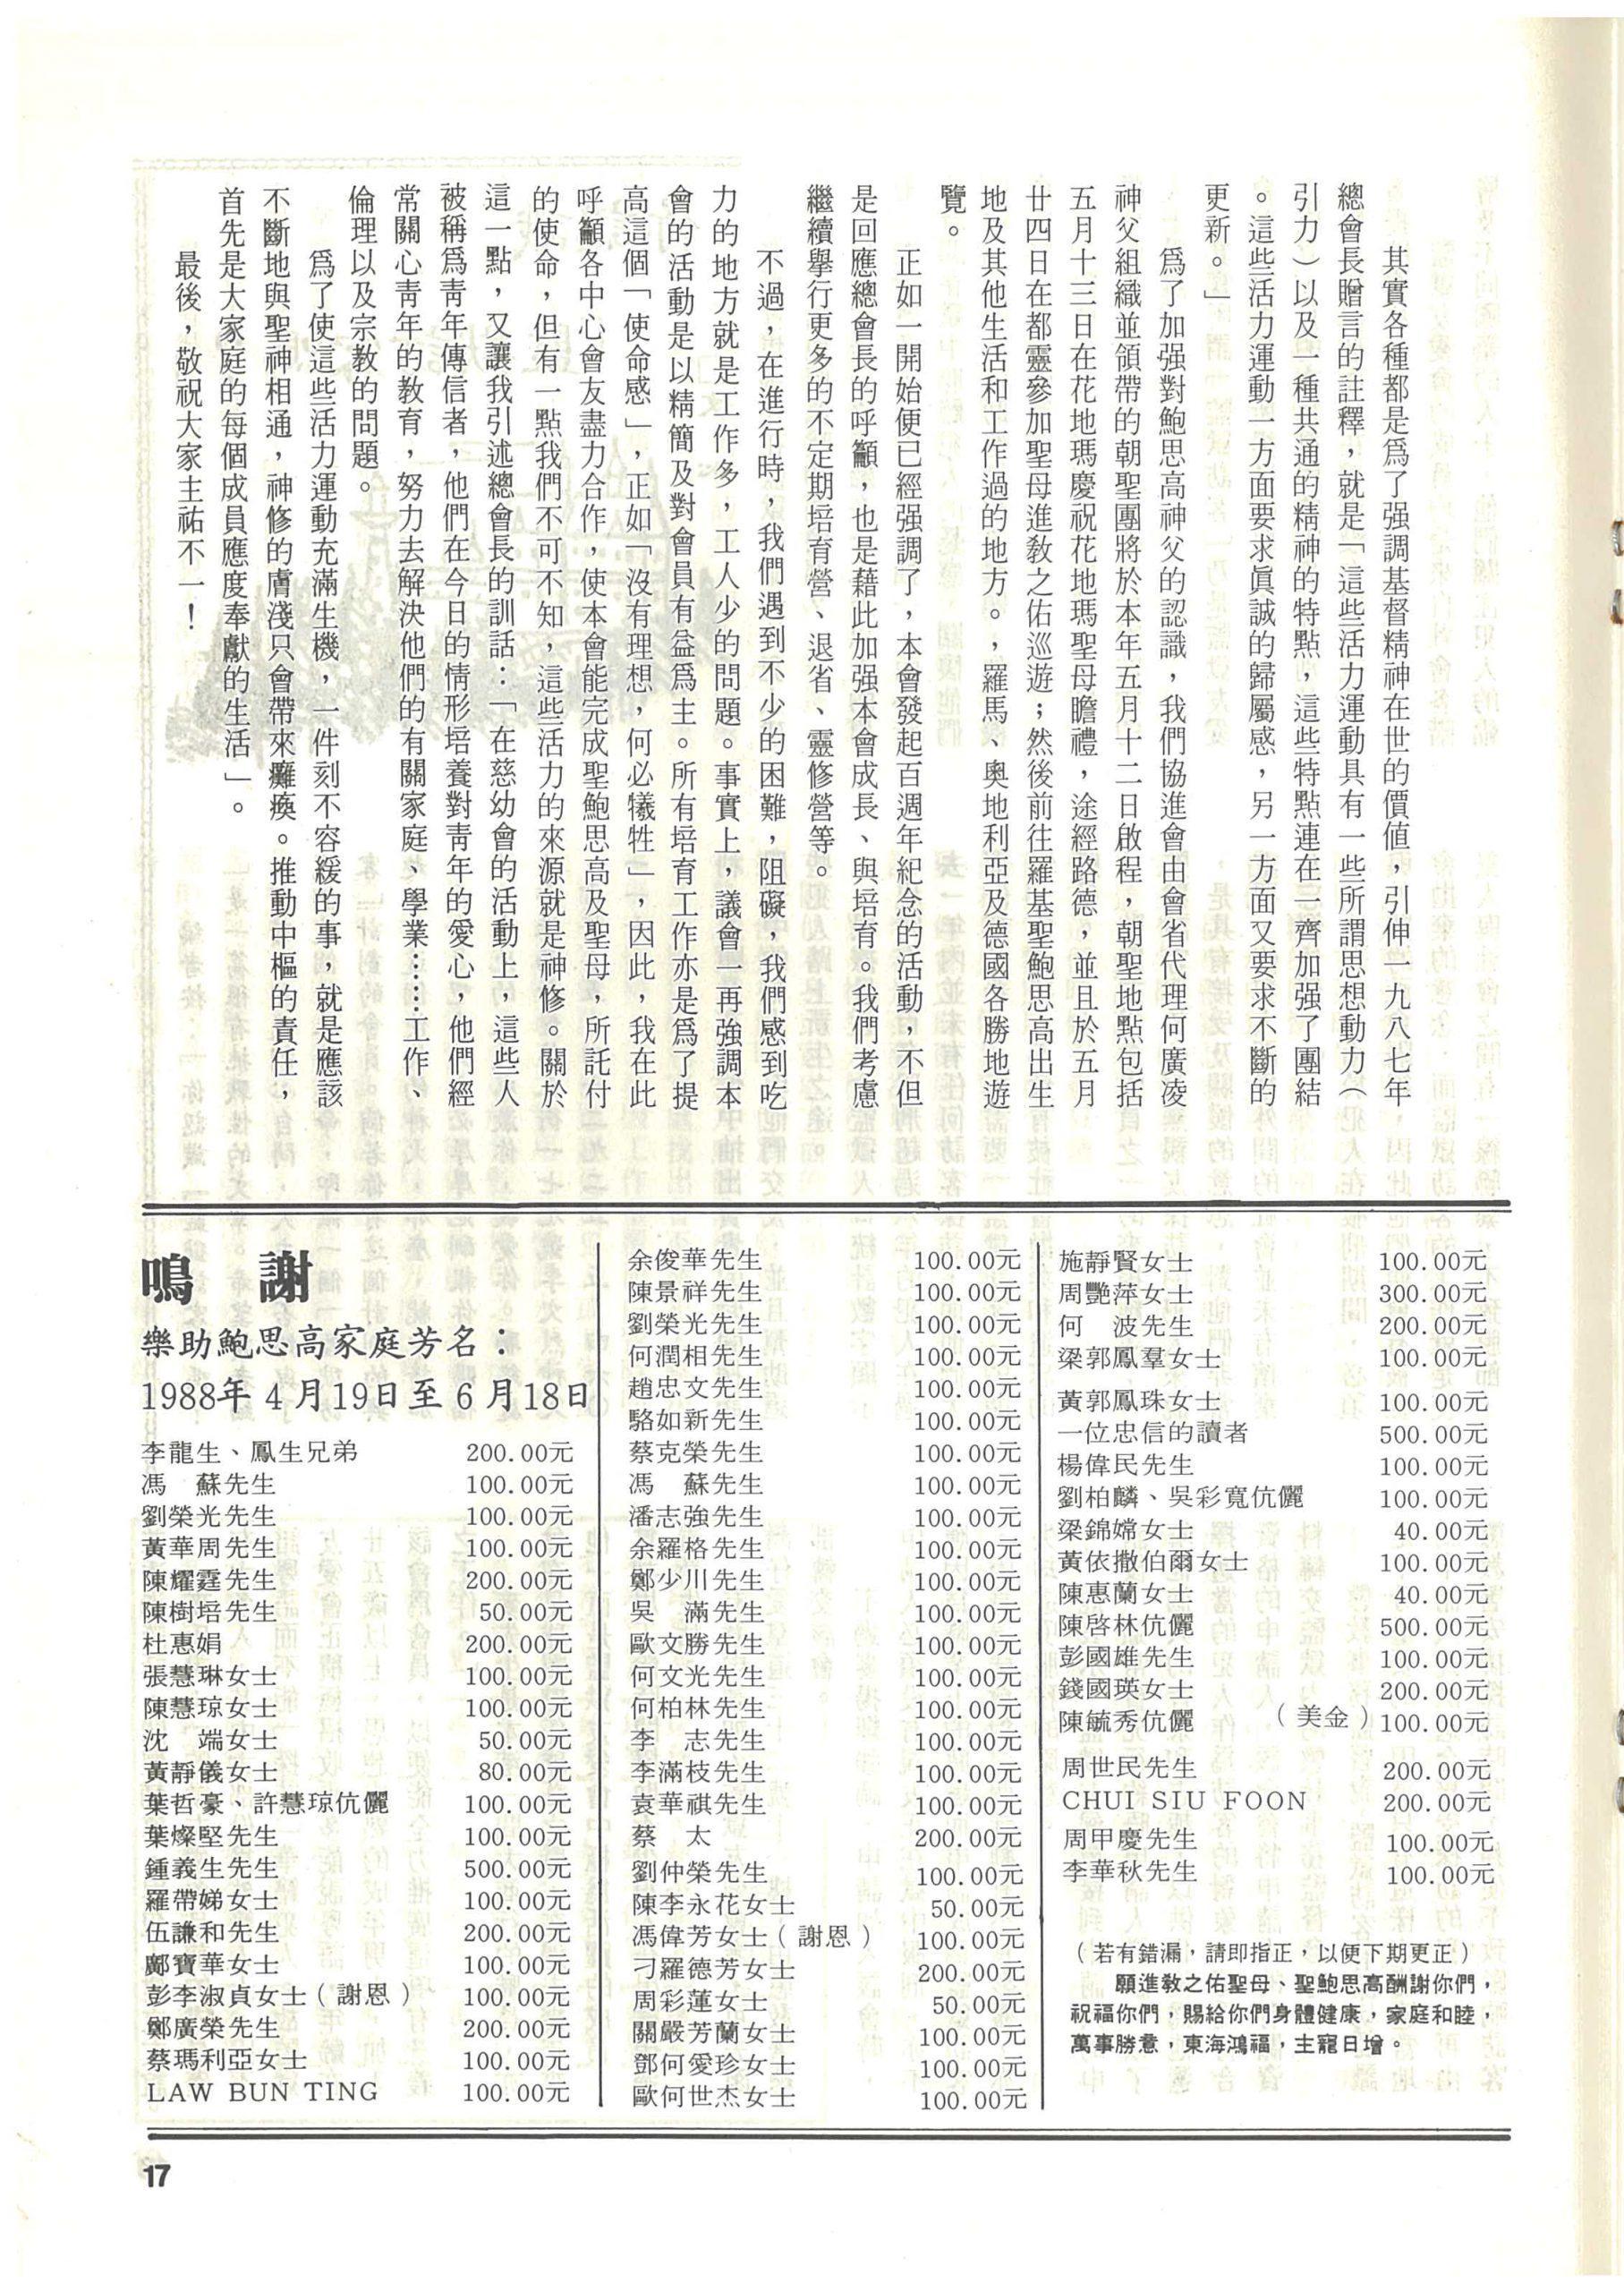 其實各種都是爲了强調基督精神在世的價値，引伸一九八七年
總會長贈言的註釋，就是「這些活力運動具有一些所謂思想動力（
引力）以及一種共通的精神的特點，這些特點連在一齊加强了團結
。這些活力運動一方面要求眞誠的歸屬感，另一方面又要求不斷的
更新。」
爲了加强對鮑思高神父的認識，我們協進會由會省代理何廣凌
神父組織並領帶的朝聖團將於本年五月十二日啟程，朝聖地點包括
五月十三日在花地瑪慶祝花地瑪聖母瞻禮，途經路德，並且於五月
廿四日在都靈參加聖母進教之佑巡遊；然後前往羅基聖鮑思高出生
地及其他生活和工作過的地方。，羅馬、奧地利亞及德國各勝地遊
覽。
正如一開始便已經强調了，本會發起百週年紀念的活動，不但
是回應總會長的呼籲，也是藉此加强本會成長、與培育。我們考慮
繼續擧行更多的不定期培育營、退省、靈修營等。
不過，在進行時，我們遇到不少的困難，阻礙，我們感到吃
力的地方就是工作多，工人少的問題。事實上，議會一再強調本
會的活動是以精簡及對會員有益爲主。所有培育工作亦是爲了提
高這個「使命感」，正如「沒有理想，何必犧牲」，因此，我在此
呼籲各中心會友盡力合作，使本會能完成聖鮑思高及聖母，所託付
的使命，但有一點我們不可不知，這些活力的來源就是神修。關於
這一點，又讓我引述總會長的訓話：「在慈幼會的活動上，這些人
被稱爲靑年傳信者，他們在今日的情形培養對靑年的愛心，他們經
常關心靑年的教育，努力去解決他們的有關家庭、學業……工作、
倫理以及宗教的問題。
爲了使這些活力運動充滿生機，一件刻不容緩的事，就是應該
不斷地與聖神相通，神修的膚淺只會帶來癱瘓。推動中樞的責任，
首先是大家庭的每個成員應度奉獻的生活」。
最後，敬祝大家主祐不一！
鳴　謝
樂助鮑思高家庭芳名：
1988年 4 月19日至 6 月18日
李龍生、鳳生兄弟 200.00元
馮　蘇先生 100.00元
劉榮光先生 100.00元
黃華周先生 100.00元
陳耀霆先生 200.00元
陳樹培先生 50.00元
杜惠娟 200.00元
張慧琳女士 100.00元
陳慧琼女士 100.00元
沈　端女士 50.00元
黃靜儀女士 80.00元
葉哲豪、許慧琼伉儷 100.00元
葉燦堅先生 100.00元
鍾義生先生 500.00元
羅帶娣女士 100.00元
伍謙和先生 200.00元
鄺寶華女士 100.00元
彭李淑貞女士（謝恩） 100.00元
鄭廣榮先生 200.00元
蔡瑪利亞女士 100.00元
LAW BUN TING 100.00元
余俊華先生 100.00元
陳景祥先生 100.00元
劉榮光先生 100.00元
何潤相先生 100.00元
趙忠文先生 100.00元
駱如新先生 100.00元
蔡克榮先生 100.00元
馮　蘇先生 100.00元
潘志強先生 100.00元
余羅格先生 100.00元
鄭少川先生 100.00元
吳　滿先生 100.00元
歐文勝先生 100.00元
何文光先生 100.00元
何柏林先生 100.00元
李　志先生 100.00元
李滿枝先生 100.00元
袁華祺先生 100.00元
蔡　太 200.00元
劉仲榮先生 100.00元
陳李永花女士 50.00元
馮偉芳女士（謝恩） 100.00元
刁羅德芳女士 200.00元
周彩蓮女士 50.00元
關嚴芳蘭女士 100.00元
鄧何愛珍女士 100.00元
歐何世杰女士 100.00元
施靜賢女士 100.00元
周艷萍女士 300.00元
何　波先生 200.00元
梁郭鳳羣女士 100.00元
黃郭鳳珠女士 100.00元
一位忠信的讀者 500.00元
楊偉民先生 100.00元
劉柏麟、吳彩寬伉儷 100.00元
梁錦嫦女士 40.00元
黃依撒伯爾女士 100.00元
陳惠蘭女士 40.00元
陳啓林伉儷 500.00元
彭國雄先生 100.00元
錢國瑛女士 200.00元
陳毓秀伉儷 （美金）100.00元
周世民先生 200.00元
CHUI SIU FOON 200.00元
周甲慶先生 100.00元
李華秋先生 100.00元
（若有錯漏，請即指正，以便下期更正）
願進敎之佑聖母、聖鮑思高酬謝你們，
祝福你們，賜給你們身體健康，家庭和睦，
萬事勝意，東海鴻福，主寵日增。
17